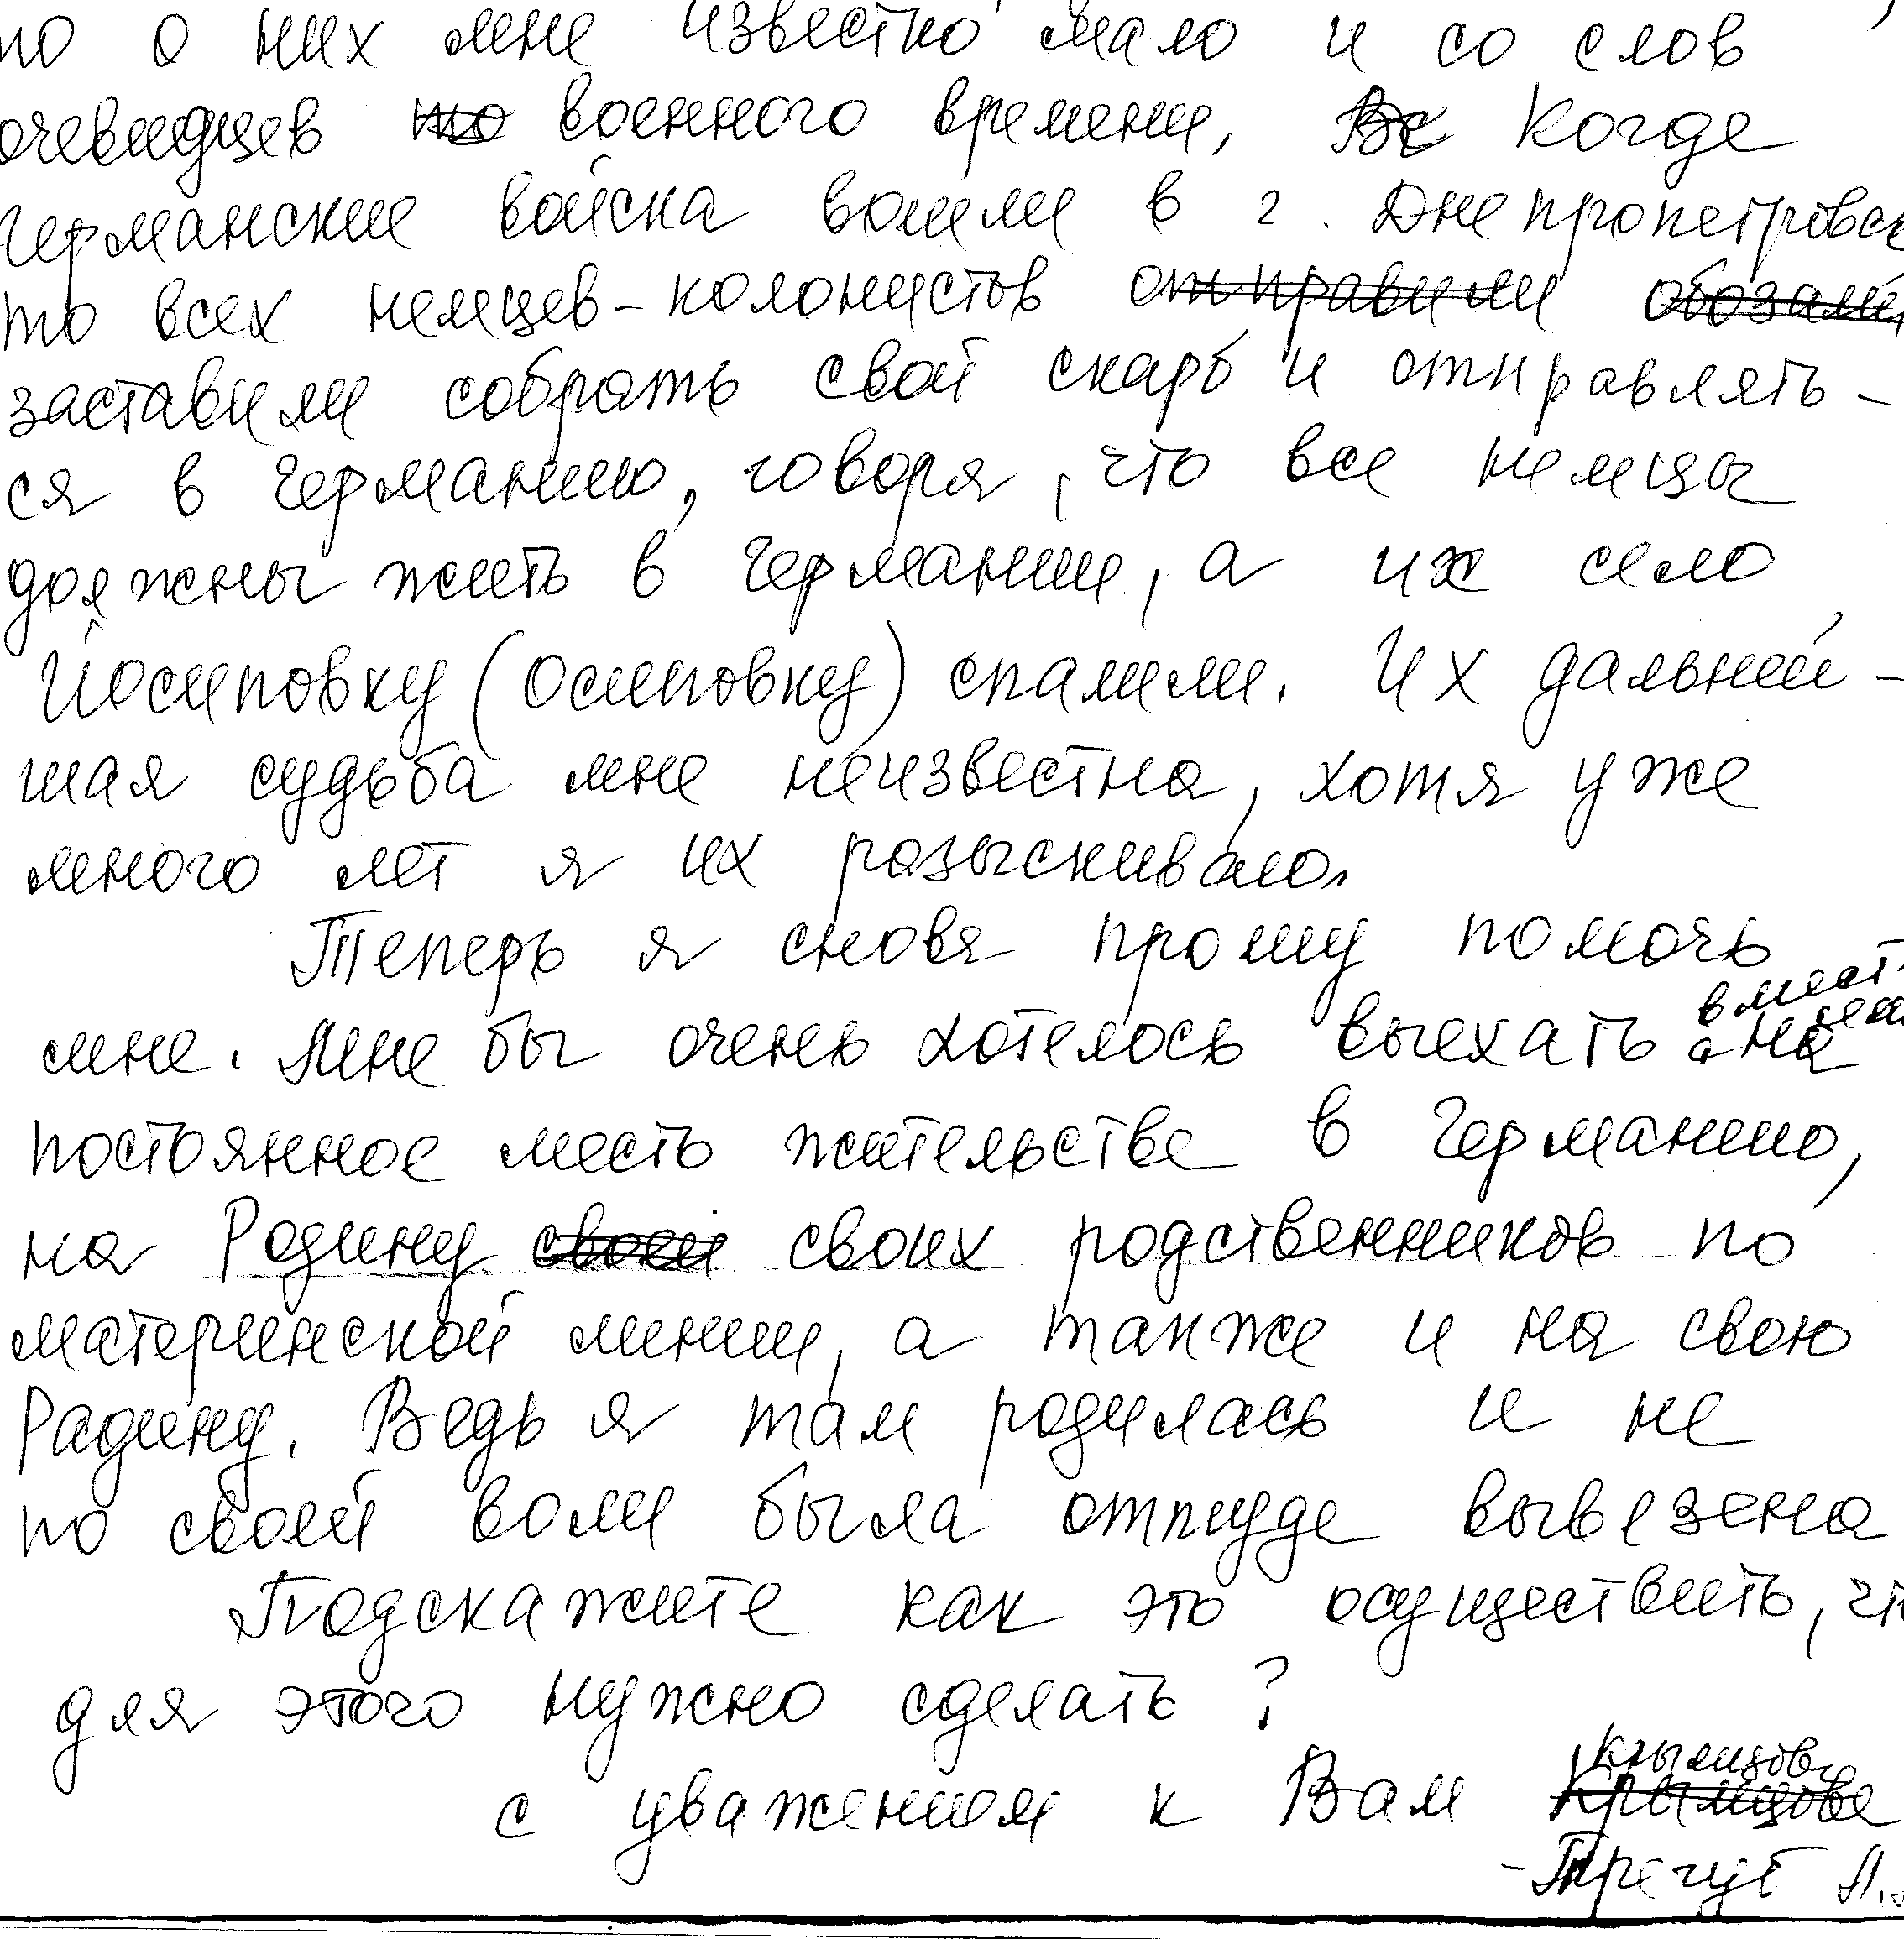 но о них мне известно мало и со слов
очевидцев ~~по~~ военного времени, ~~Вс~~ Когда
германские войска вошли в г. Днепропетровск
то всех немцев-колонистов ~~отправили~~ ~~обозами~~
заставили собрать свой скарб и отправлять-
ся в Германию, говоря, что все немцы
должны жить в Германии, а их село
Йосиповку (Осиповку) спалили. Их дальней-
шая судьба мне неизвестна, хотя уже
много лет я их розыскиваю.
Теперь я снова прошу помочь
мне. Мне бы очень хотелось выехать на
постоянное место жительства в Германию,
на Родину ~~своей~~ своих родственников по
материнской линии, а также и на свою
Радину. Ведь я там родилась и не
по своей воли была оттуда вывезена
Подскажите как это осуществить, что
для этого нужно сделать?
с уважением к Вам Крымцова
~~Крымцова~~
-Трегуб Л.